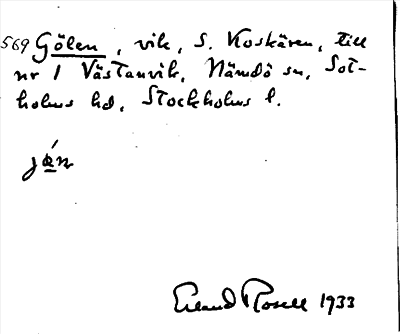 569 Gölen, vik, S. Koskären, till
nr 1 Västanvik, Nämdö sn, Sot-
holms hd, Stockholms l.
Erland Rosell 1933